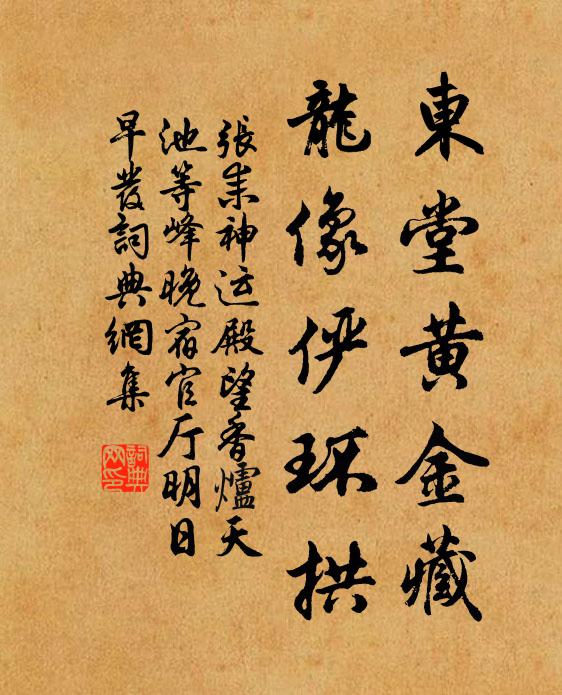 東堂黄金藏
龍像俨环拱
張耒神运殿望香爐天
池等峰晚宿官厅明日
早發詞典網集
詞典网印